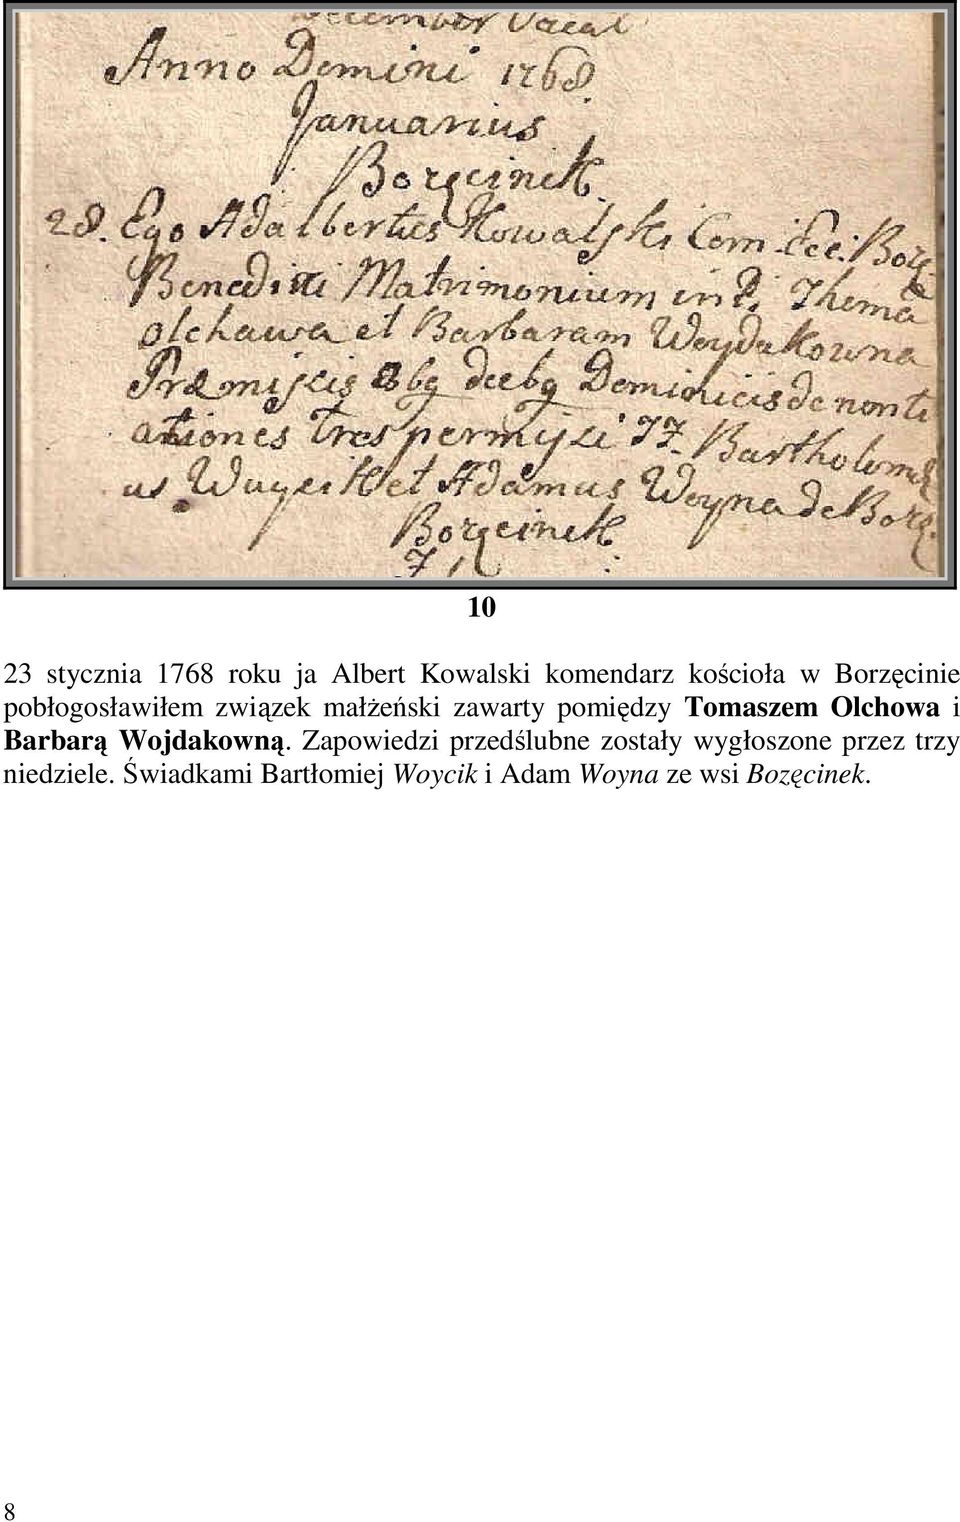 December Vacat
Anno Domini 1768.
Januarius
Borzęcinek.
28. Ego Adalbertus Kowalski Com: Ecc: Borzę
Benedixi Matrimonium int. Thoma
Olchawa et Barbaram Woydakowna
Præmissis Dominicis denonti
ationes tres permissi TT. Bartholomæ
us Wuycik et Adamus Woyna de Borzę.
Borzęcinek.
10
23 stycznia 1768 roku ja Albert Kowalski komendarz kościoła w Borzęcinie
pobłogosławiłem związek małżeński zawarty pomiędzy Tomaszem Olchowa i
Barbarą Wojdakowną. Zapowiedzi przedślubne zostały wygłoszone przez trzy
niedziele. Świadkami Bartłomiej Woycik i Adam Woyna ze wsi Bozęcinek.
8